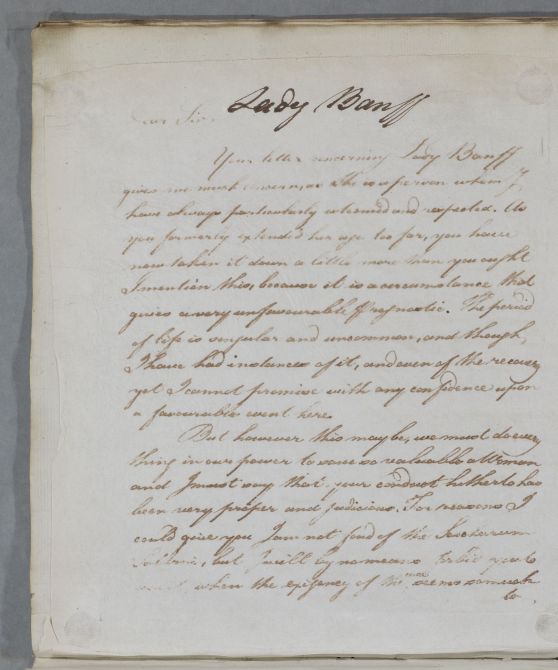 Lady Banff
Dear Sir,
Your letter concerning Lady Banff
gives me much concern as she is a person whom I
have always particularly esteemed and respected. As
you formerly extended her age too far, you have
now taken it down a little more than you ought
I mention this, because it is a circumstance that
gives a very unfavourable Prognostic. The period
of life is singular and uncommon, and though
I have had instances of it, and even of the recovery
yet I cannot promise with any confidence upon
a favourable event here.
But however this may be, we must do every
thing in our power to save so valuable a Woman
and I must say that your conduct hitherto has
been very proper and judicious. For reasons I
could give you I am not fond of the
but I will by no means forbid you to
when the exigency of the case seems so much
to